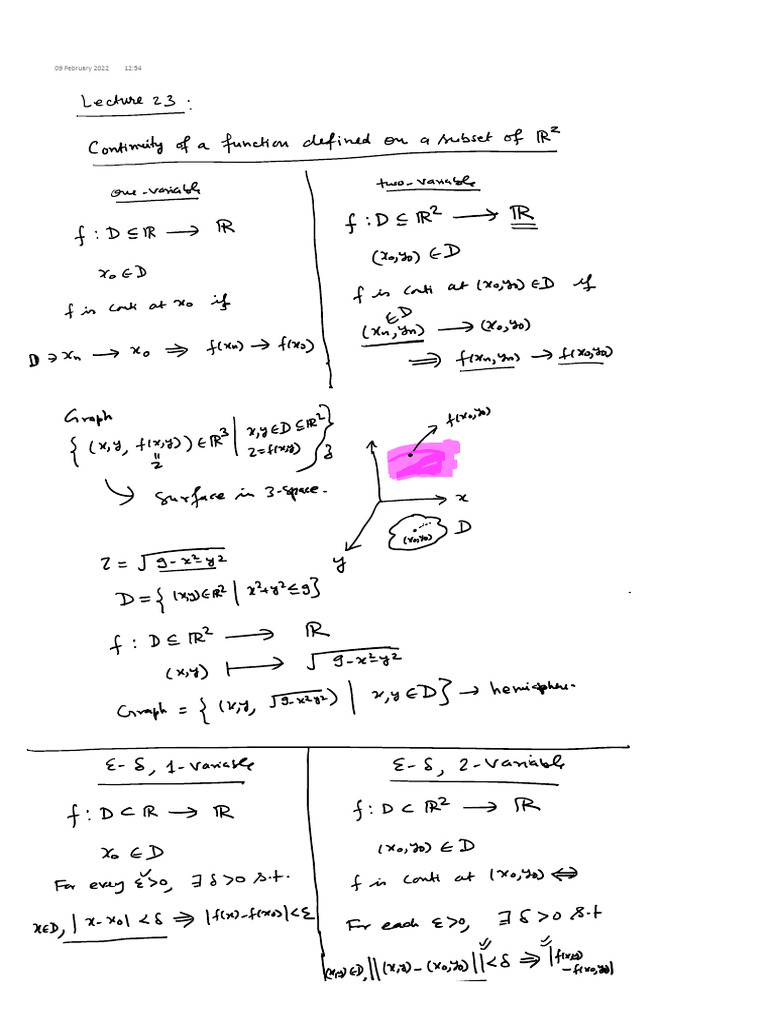 09 February 2022 12:54
Lecture 23:
Continuity of a function defined on a subset of ℝ²
one-variable
f : D ⊆ ℝ → ℝ
x₀ ∈ D
f is conti at x₀ if
D ∋ xₙ → x₀ ⇒ f(xₙ) → f(x₀)
two-variable
f : D ⊆ ℝ² → ℝ
(x₀,y₀) ∈ D
f is conti at (x₀,y₀) ∈ D if
∈ D
(xₙ,yₙ) → (x₀,y₀)
⇒ f(xₙ,yₙ) → f(x₀,y₀)
Graph
{ (x,y, f(x,y)) ∈ ℝ³ | x,y ∈ D ⊆ ℝ²
z = f(x,y) }
॥
z
→ Surface in 3-space.
z
f(x₀,y₀)
x
y
(x₀,y₀)
D
z = √9-x²-y²
D = { (x,y) ∈ ℝ² | x²+y² ≤ 9 }
f : D ⊆ ℝ² → ℝ
(x,y) ↦ √9-x²-y²
Graph = { (x,y, √9-x²-y²) | x,y ∈ D } → hemisphere.
ε-δ, 1-variable
f : D ⊂ ℝ → ℝ
x₀ ∈ D
For every ε>0, ∃ δ>0 s.t.
x∈D, |x-x₀| < δ ⇒ |f(x)-f(x₀)| < ε
ε-δ, 2-variable
f : D ⊂ ℝ² → ℝ
(x₀,y₀) ∈ D
f is conti at (x₀,y₀) ⇔
For each ε>0, ∃ δ>0 s.t
(x,y)∈D, ||(x,y)-(x₀,y₀)|| < δ ⇒ |f(x,y)
-f(x₀,y₀)|